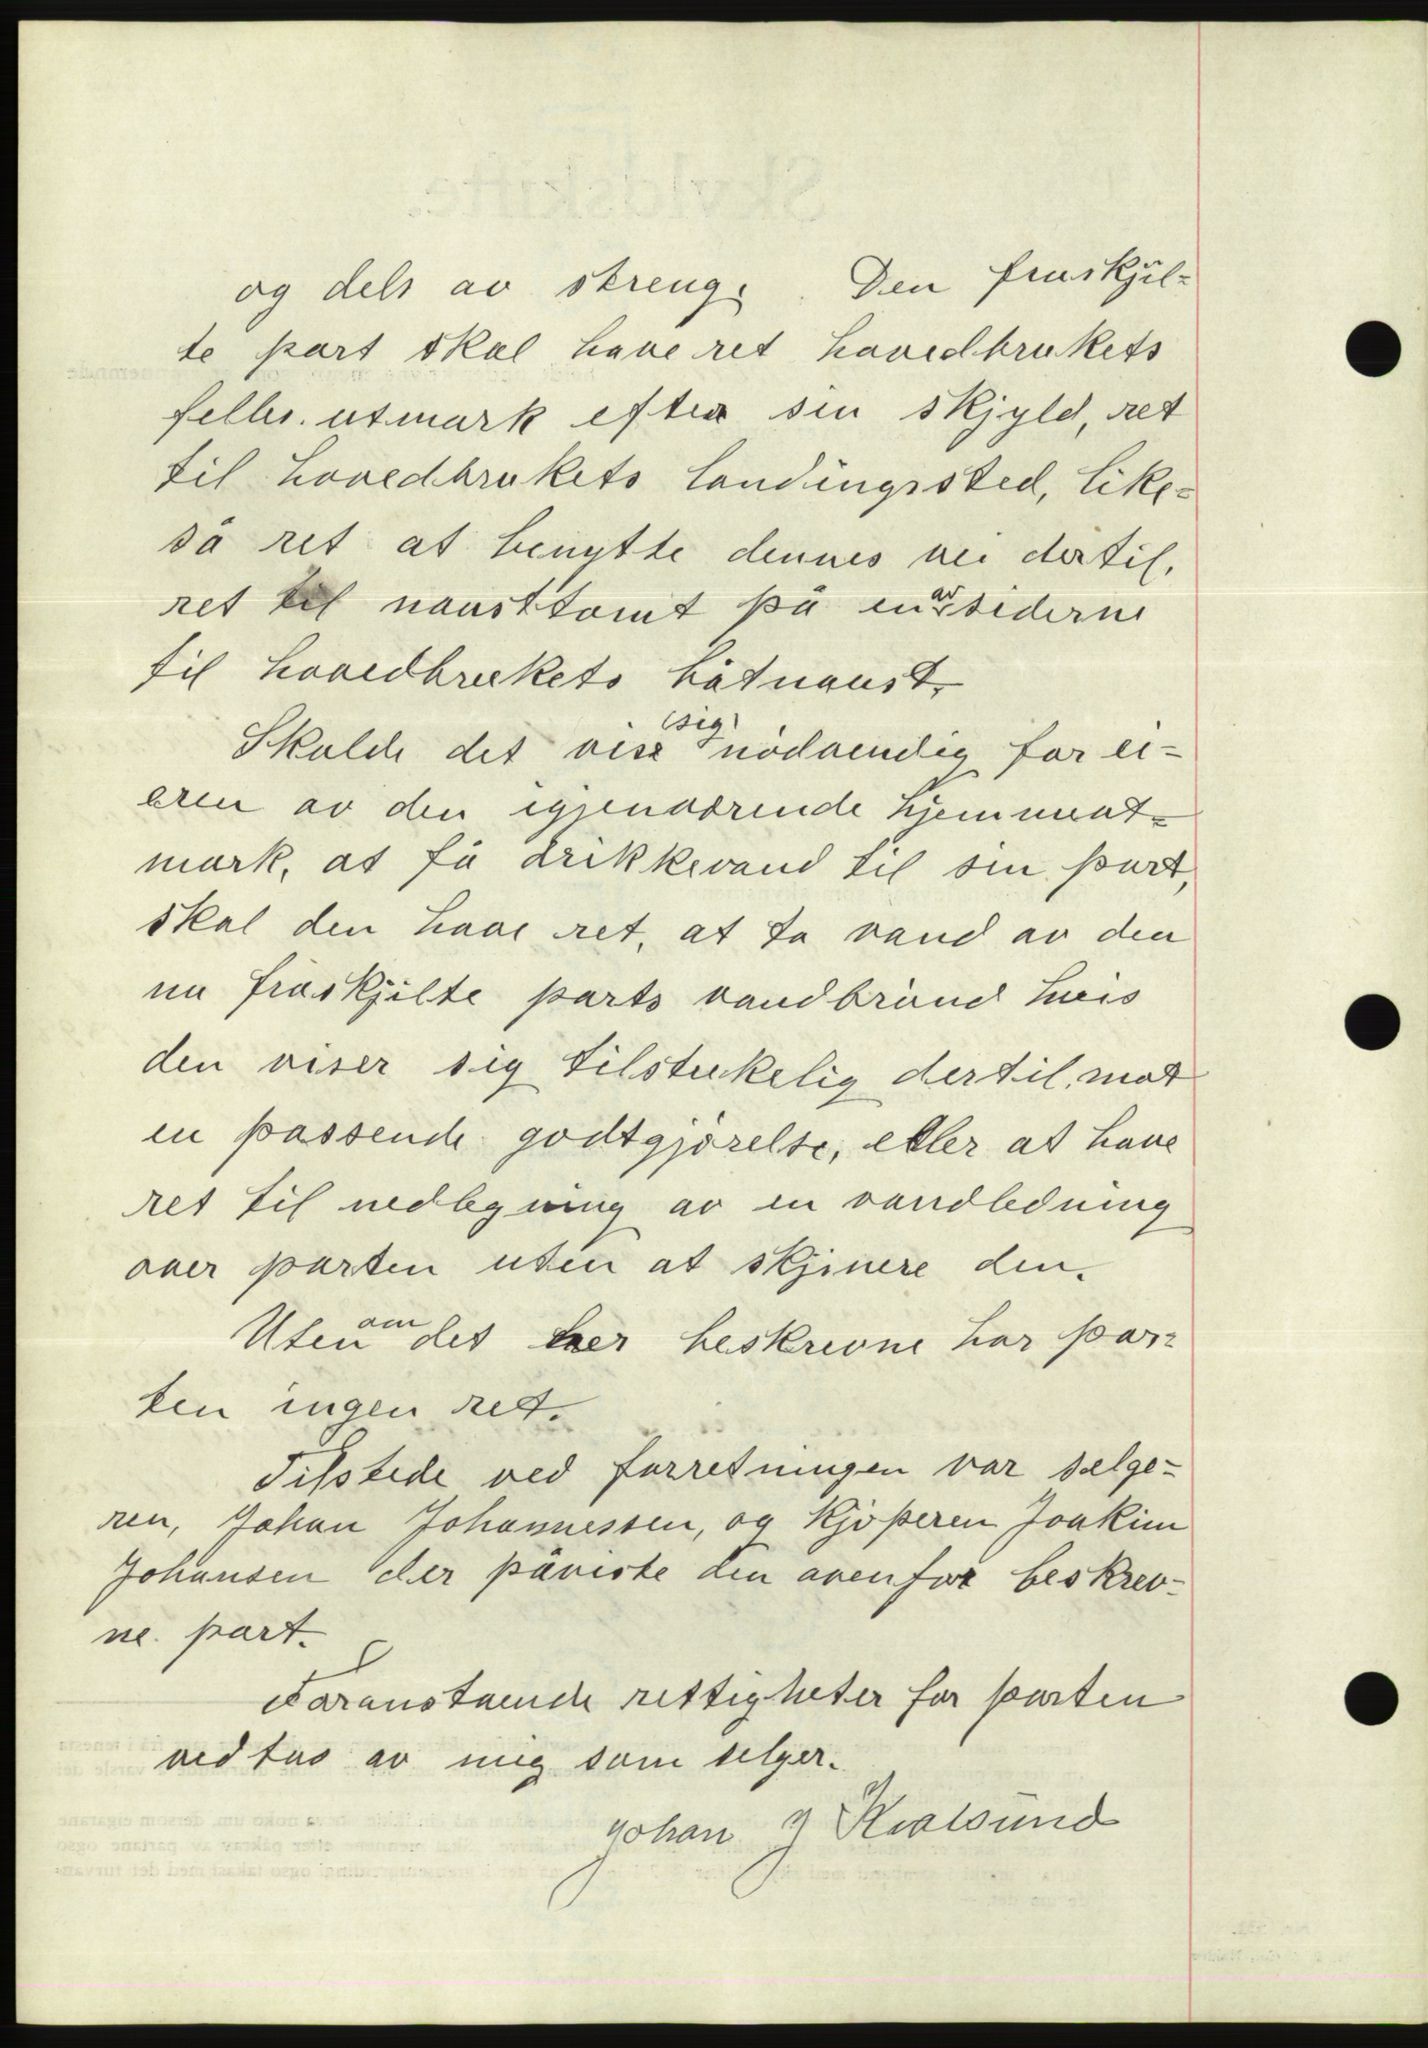 og dels av streng. Den fraskjil-
te part skal have ret hovedbrukets
felles utmark efter sin skjyld, ret
til hovedbrukets landingssted, like-
så ret at benytte dennes vei dertil,
ret til nausttomt på en av siderne
til hovedbrukets båtnaust.
Skulde det vise sig nödvendig for ei-
eren av den igjenværende hjemmeut-
mark, at få drikkevand til sin part,
skal den have ret, at ta vand av den
nu fraskjilte parts vandbrönd hvis
den viser sig tilstrekelig dertil, mot
en passende godtgjörelse, eller at have
ret til nedlegning av en vandledning
over parten uten at skjinere den.
Utenom det her beskrevne har par-
ten ingen ret.
Tilstede ved forretningen var sælge-
ren, Johan Johannessen, og kjöperen Joakim
Johansen der påviste den ovenfor beskrev-
ne part.
Foranstaende rettigheter for parten
vedtas av mig som selger.
Johan J Kvalsund